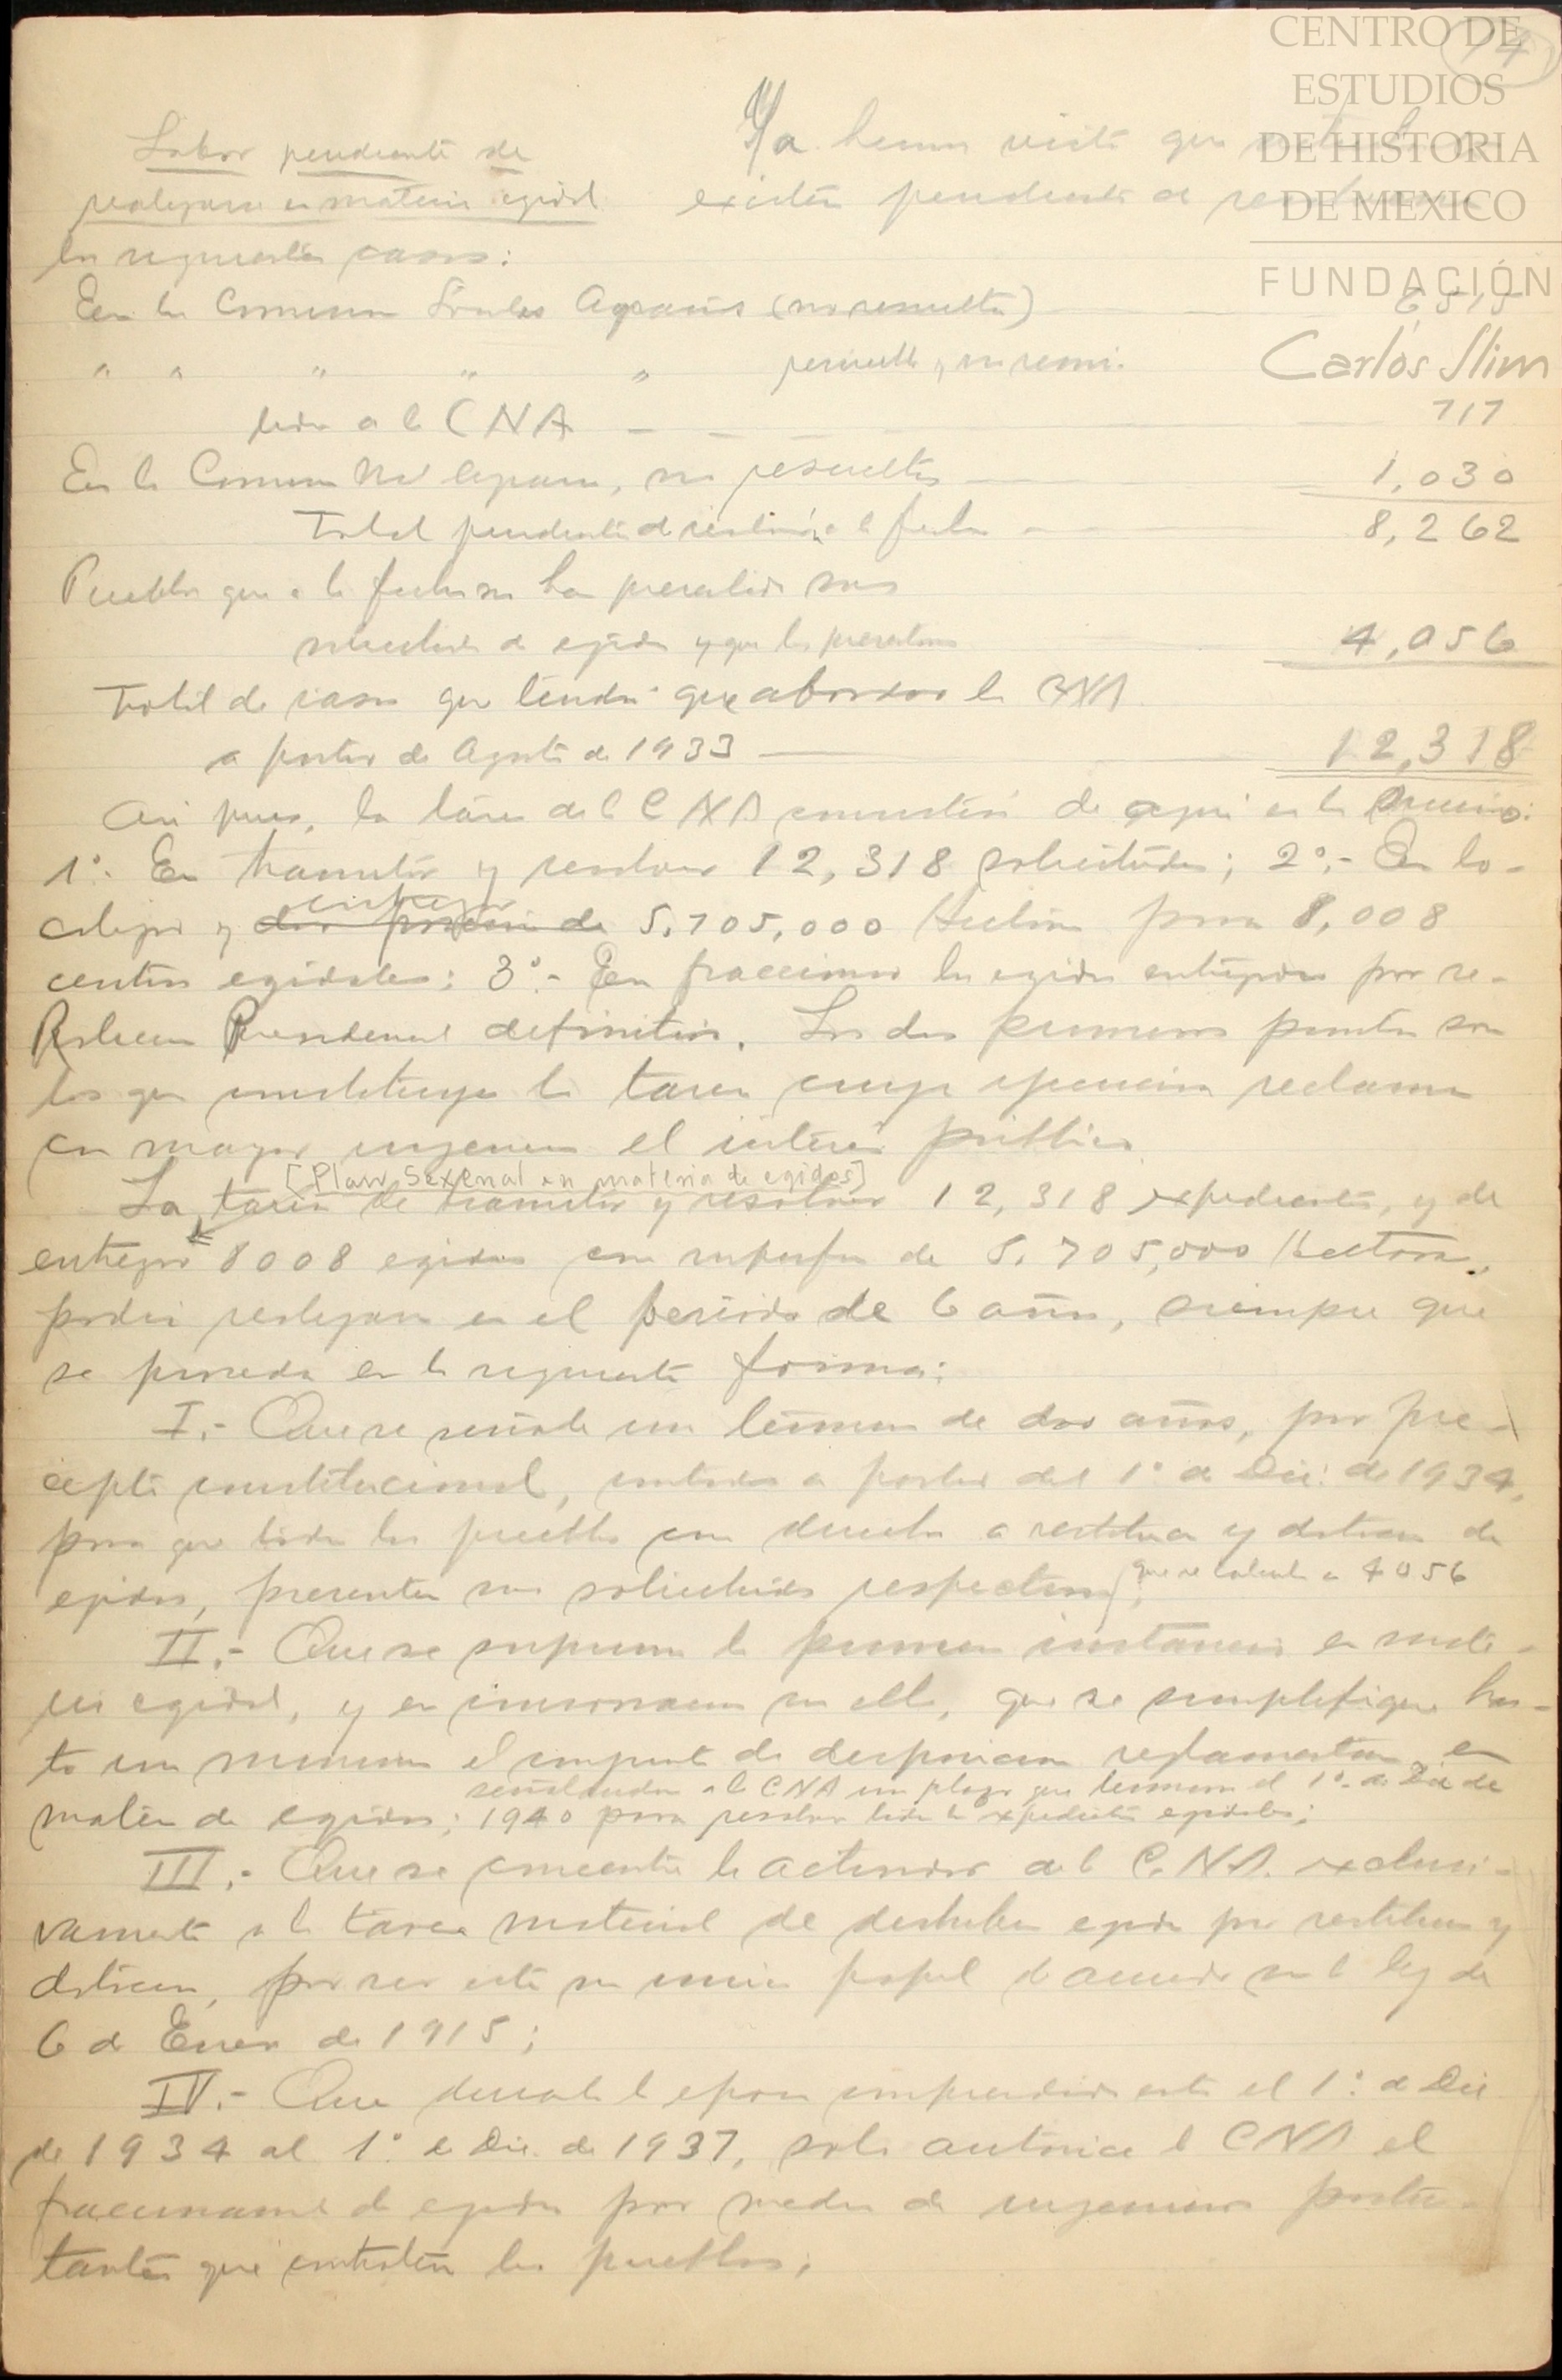 CENTRO DE
ESTUDIOS
DE HISTORIA
DE MEXICO
FUNDACIÓN
Carlos Slim
14
Labor pendiente de
realizarse en materia egidal
Ya hemos visto que
existen pendientes de
los siguientes casos:
En las Comision Locales Agrarias (no resueltos) 6515
" " " " " resueltos y no remi-
tidos a la CNA 717
En la Comision Nal Agraria, no resueltos 1,030
Total pendientes de resolución a la fecha 8,262
Pueblos que a la fecha no han presentado sus
solicitudes de egidos y que las presentaran 4,056
Total de casos que tendra que abordar la CNA
a partir de Agosto de 1933 12,318
Asi pues, la tarea de la CNA consistirá de aqui en lo
1º. En tramitar y resolver 12,318 solicitudes; 2º.- En lo-
calizar y dar posesión de entregar 5.705,000 Hectáreas para 8,008
centros egidales; 3º.- En fraccionar los egidos entregados por re-
solucion Presidencial definitiva. Los dos primeros puntos son
los que constituyen la tarea cuya ejecucion reclama
con mayor urgencia el interés público.
[Plan Sexenal en materia de egidos]
La tarea de tramitar y resolver 12,318 expedientes, y de
entregar 8008 egidos con superficie de 5.705,000 Hectáreas,
podrá realizarse en el período de 6 años, siempre que
se proceda en la siguiente forma:
I.- Que se señale un término de dos años, por pre-
cepto constitucional, contados a partir del 1º de Dic. de 1934,
para que todos los pueblos con derecho a restitucion y dotacion de
egidos, presenten sus solicitudes respectivas, que se calculan a 4056
II.- Que se suprima la primera instancia en mate-
ria egidal, y en consonancia con ello, que se simplifique has-
ta un minimum el conjunto de disposiciones reglamentarias en
materia de egidos; señalandose a la CNA un plazo que termina el 1º de Dic de
1940 para resolver todos los expedientes egidales;
III.- Que se concentre la actividad de la C.N.A. exclusi-
vamente a la tarea material de distribuir egidos por restitucion y
dotacion, por ser este su unico papel de acuerdo con la ley de
6 de Enero de 1915;
IV.- Que durante la epoca comprendida entre el 1º de Dic
de 1934 al 1º de Dic. de 1937, solo autorice la CNA el
fraccionamiento de egidos por medio de ingenieros postu-
lantes que contraten los pueblos;